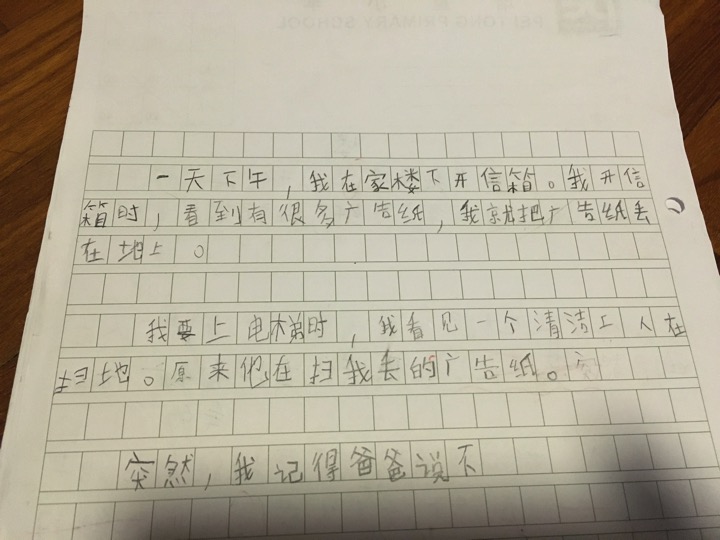 PEI TONG PRIMARY SCHOOL
一天下午，我在家楼下开信箱。我开信
箱时，看到有很多广告纸，我就把广告纸丢
在地上。
我要上电梯时，我看见一个清洁工人在
扫地。原来他在扫我丢的广告纸。
突然，我记得爸爸说不